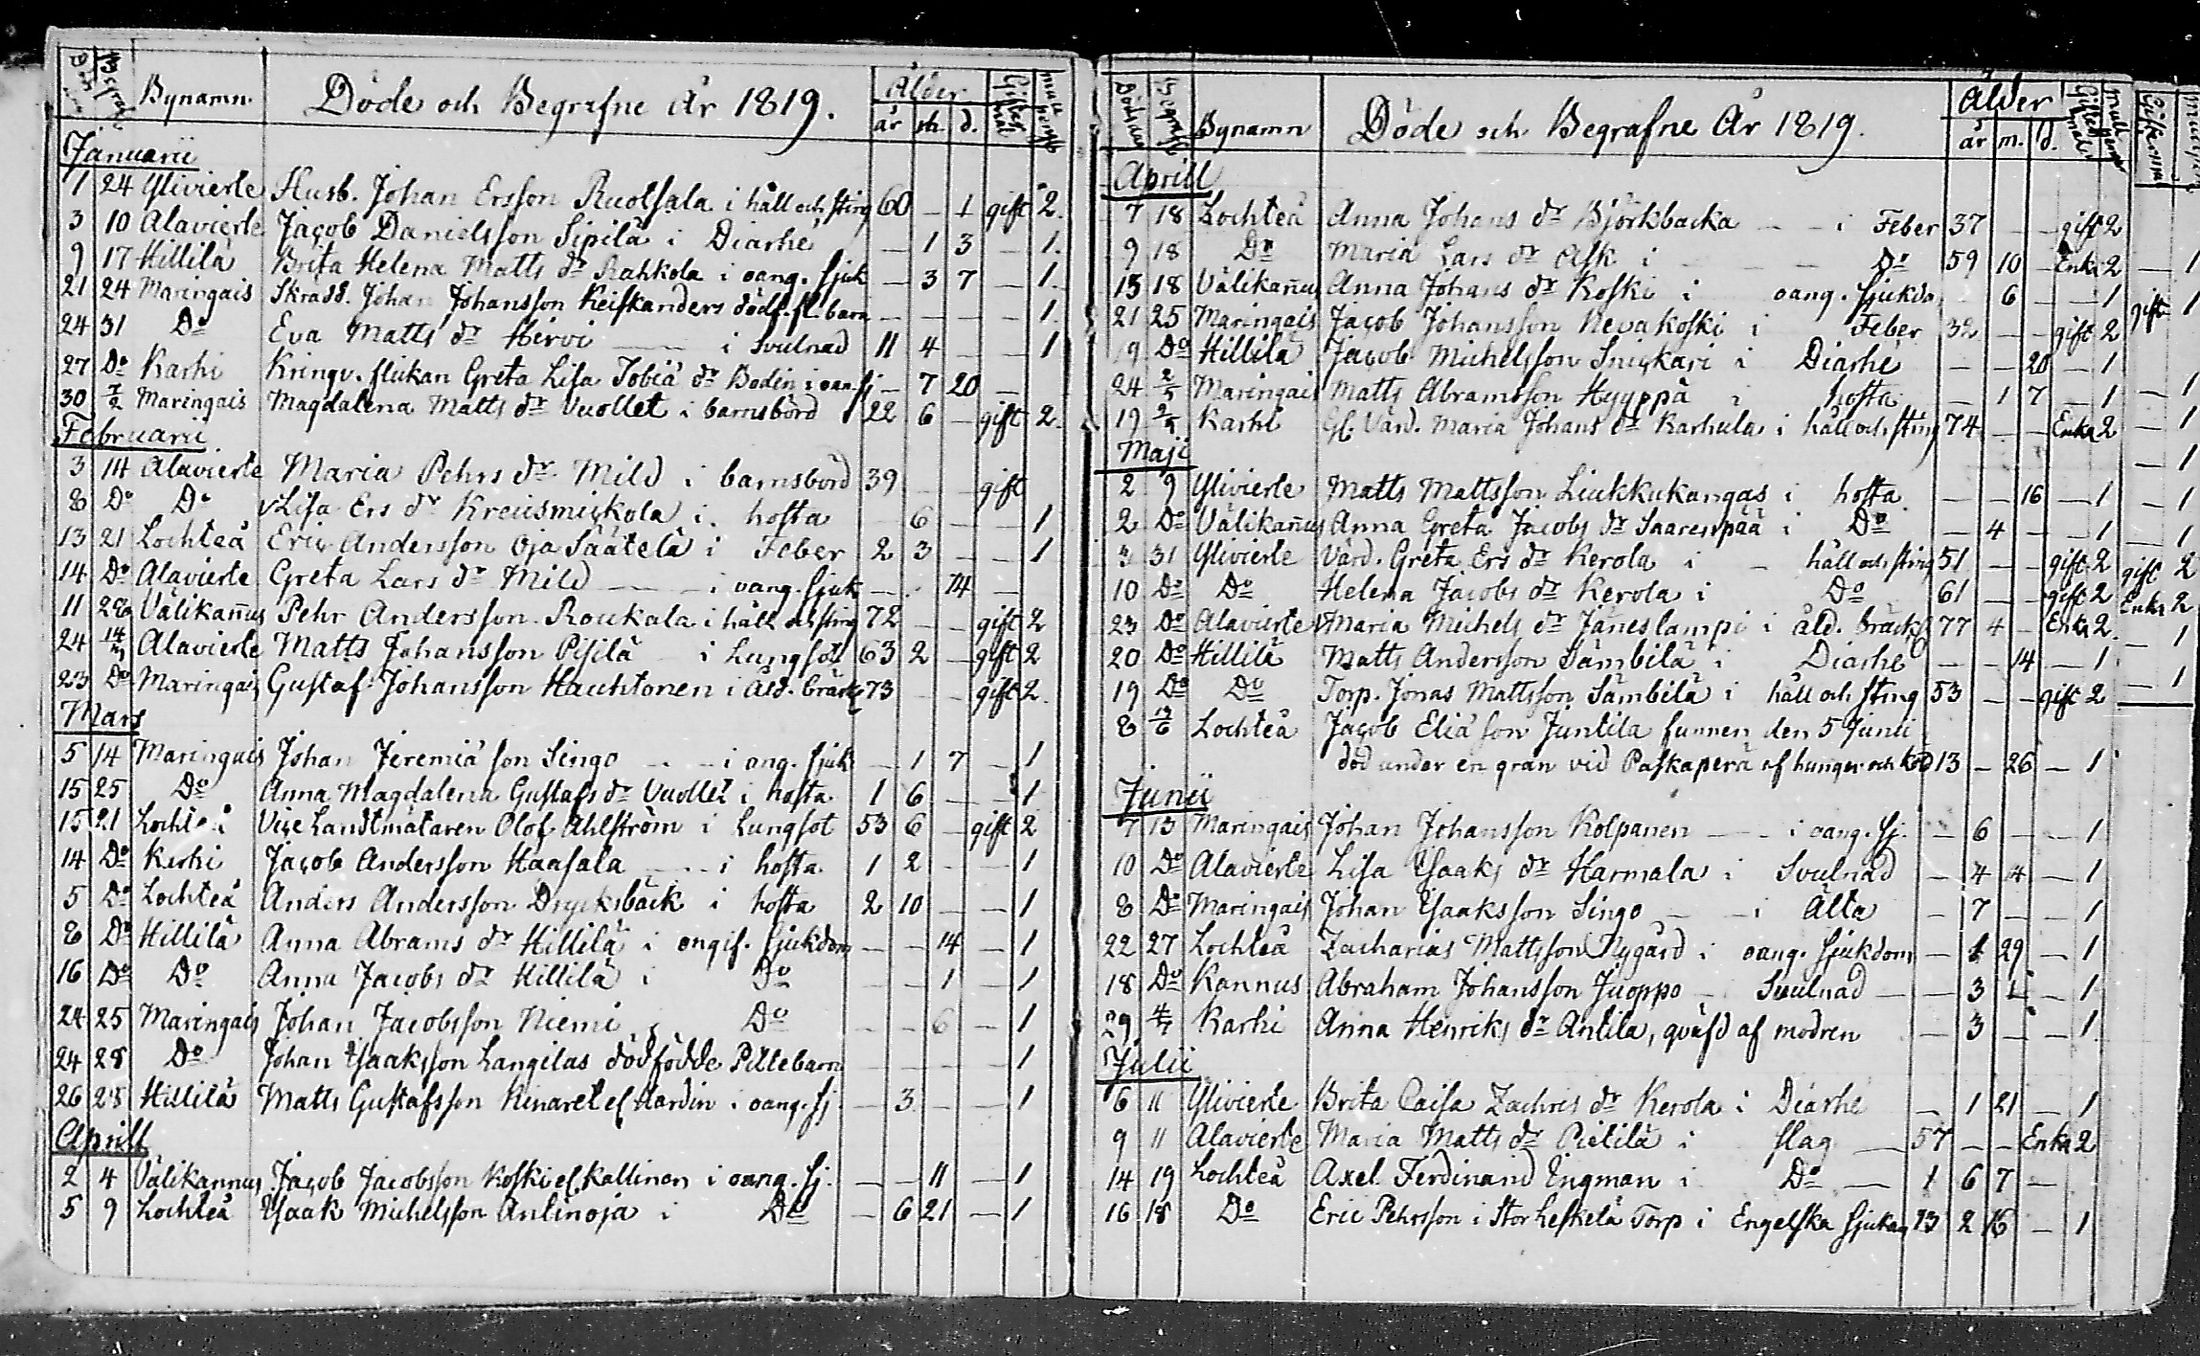 Bynamn. Döde och Begrafne År 1819. Ålder
år m. d.
Januarii
1 24 Ylivierte Husb. Johan Ersson Ruotsala i håll och sting 60 – 1 gift 2.
3 10 Alavierte Jacob Danielsson Sipilä i Diarhé – 1 3 – 1.
9 17 Hillilä Brita Helena Matts dr Rahkola i oang. sjuk – 3 7 – 1.
21 24 Maringais Skradd. Johan Johansson Keiskanders dödf. fl. barn – – – – 1.
24 31 Do Eva Matts dr Hirvi – i Svulnad 11 4 – – 1
27 Do Karhi Kringv. flickan Greta Lisa Tobiä dr Bodin i oan. sj – 7 20 –
30 7/2 Maringais Magdalena Matts dr Vuollet i barnsbörd 22 6 – gift 2.
Februarii
3 14 Alavierte Maria Pehrs dr Mild i barnsbörd 39 – – gift
8 Do Do Lisa Ers dr Kreusmickola i hosta 6 – – 1
13 21 Lochteå Eric Andersson Oja Säätelä i Feber 2 3 – – 1
14 Do Alavierte Greta Lars dr Mild – i oang. sjuk – – 14 –
11 28 Välikannus Pehr Andersson Roukala i håll och sting 72 – – gift 2
24 14/3 Alavierte Matts Johansson Pisilä – i Lungsot 63 2 – gift 2
23 Do Maringais Gustaf Johansson Hauhtonen i Åld. bräck 73 – – gift 2.
Mars
5 14 Maringais Johan Jeremiä son Singo – – i ang. sjuk – 1 7 – 1
15 25 Do Anna Magdalena Gustafs dr Vuollet i hosta 1 6 – – 1
15 21 Lochteå Vice Landtmätaren Olof Ahlström i Lungsot 53 6 – gift 2
14 Do Karhi Jacob Andersson Haasala – i hosta 1 2 – – 1
5 Do Lochteå Anders Andersson Drycksbäck i hosta 2 10 – – 1
8 Do Hillilä Anna Abrams dr Hillilä i ongif. sjukdom – – 14 – 1
16 Do Do Anna Jacobs dr Hillilä i Do – – 1 – 1
24 25 Maringais Johan Jacobsson Niemi Do – – 6 – 1
24 28 Do Johan Ysaaksson Langilas dödfödde Piltebarn – – – – 1
26 28 Hillilä Matts Gustafsson Kinaret el Hardin i oang. sj. – 3 – – 1
Aprill
2 4 Välikannus Jacob Jacobsson Koski el Kallinen i oang. sj. – – 11 – 1
5 9 Lochteå Ysaak Michelsson Anlinoja i Do – 6 21 – 1
Bynamn Döde och Begrafne År 1819. Ålder
år m. d.
Aprill
7 18 Lochteå Anna Johans dr Björkbacka – – i Feber 37 – – gift 2
9 18 Do Maria Lars dr Ask i – – Do 59 10 – Enka 2
13 18 Välikannus Anna Johans dr Koski i oang. sjukdo 6 – – 1
21 25 Maringais Jacob Johansson Nevakoski i Feber 32 – – gift 2
19 Do Hillilä Jacob Michelsson Snickari i Diarhé – – 20 – 1
24 2/5 Maringais Matts Abramsson Hyyppä i hosta – 1 7 – 1
19 2/5 Karhi Gl. Värd. Maria Johans dr Karhula i håll och sting 74 – – Enka 2
Maji
2 9 Ylivierte Matts Mattsson Liukkukangas i hosta – – 16 – 1
2 Do Välikannus Anna Greta Jacobs dr Saarenpää i Do – 4 – – 1
3 31 Ylivierte Värd. Greta Ers dr Kerola i – håll och sting 51 – – gift 2
10 Do Do Helena Jacobs dr Kerola i Do 61 – – gift 2
23 Do Alavierte Maria Michels dr Jäneslampi i åld. bräckl 77 4 – Enka 2.
20 Do Hillilä Matts Andersson Sämbilä i Diarhé – – 14 – 1
19 Do Do Torp. Jonas Mattsson Sämbilä i håll och sting 53 – – gift 2
8 13/6 Lochteå Jacob Eliä son Juntila funnen den 5 Junii
död under en gran vid Paskaperä af hunger och köld 13 – 26 – 1
Junii
7 13 Maringais Johan Johansson Kolpanen – – i oang. sj. – 6 – – 1
10 Do Alavierte Lisa Ysaaks dr Harmala i Svulnad – 4 14 – 1
8 Do Maringais Johan Ysaaksson Singo – – i Älta – 7 – – 1
22 27 Lochteå Zacharias Mattsson Nygård i oang. sjukdom – 1 29 – 1
18 Do Kannus Abraham Johansson Juoppo – Svulnad – – 3 1 – 1
29 4/7 Karhi Anna Henriks dr Antila, qväfd af modren – 3 – – 1
Julii
6 11 Ylivierte Brita Caisa Zachris dr Kerola i Diarhé – 1 21 – 1
9 11 Alavierte Maria Matts dr Pietilä i slag – 57 – – Enka 2
14 19 Lochteå Axel Ferdinand Engman i Do – 1 6 7 –
16 18 Do Eric Pehrsson i Stor Leskelä Torp i Engelska sjukan 13 2 16 – 1
– 1
gift 1
– 1
– 1
– 1
– 1
– 1
gift 2
Enka 2
– 1
– 1